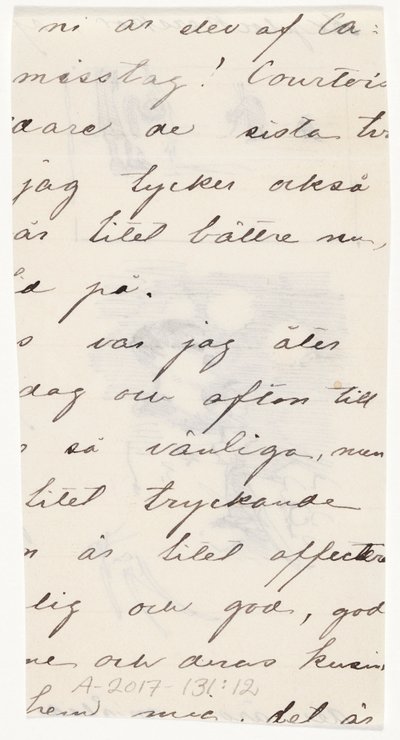 ni är elev af Ca:
misstag! Courtois
dare de sista tr
jag tycker också
är litet bättre nu,
d på.
s var jag åter
dag och afton till
så vänliga, men
litet tryckande
n är litet affecter
lig och god, god
ne och deras kusin
A-2017-131:12
hem med. det är